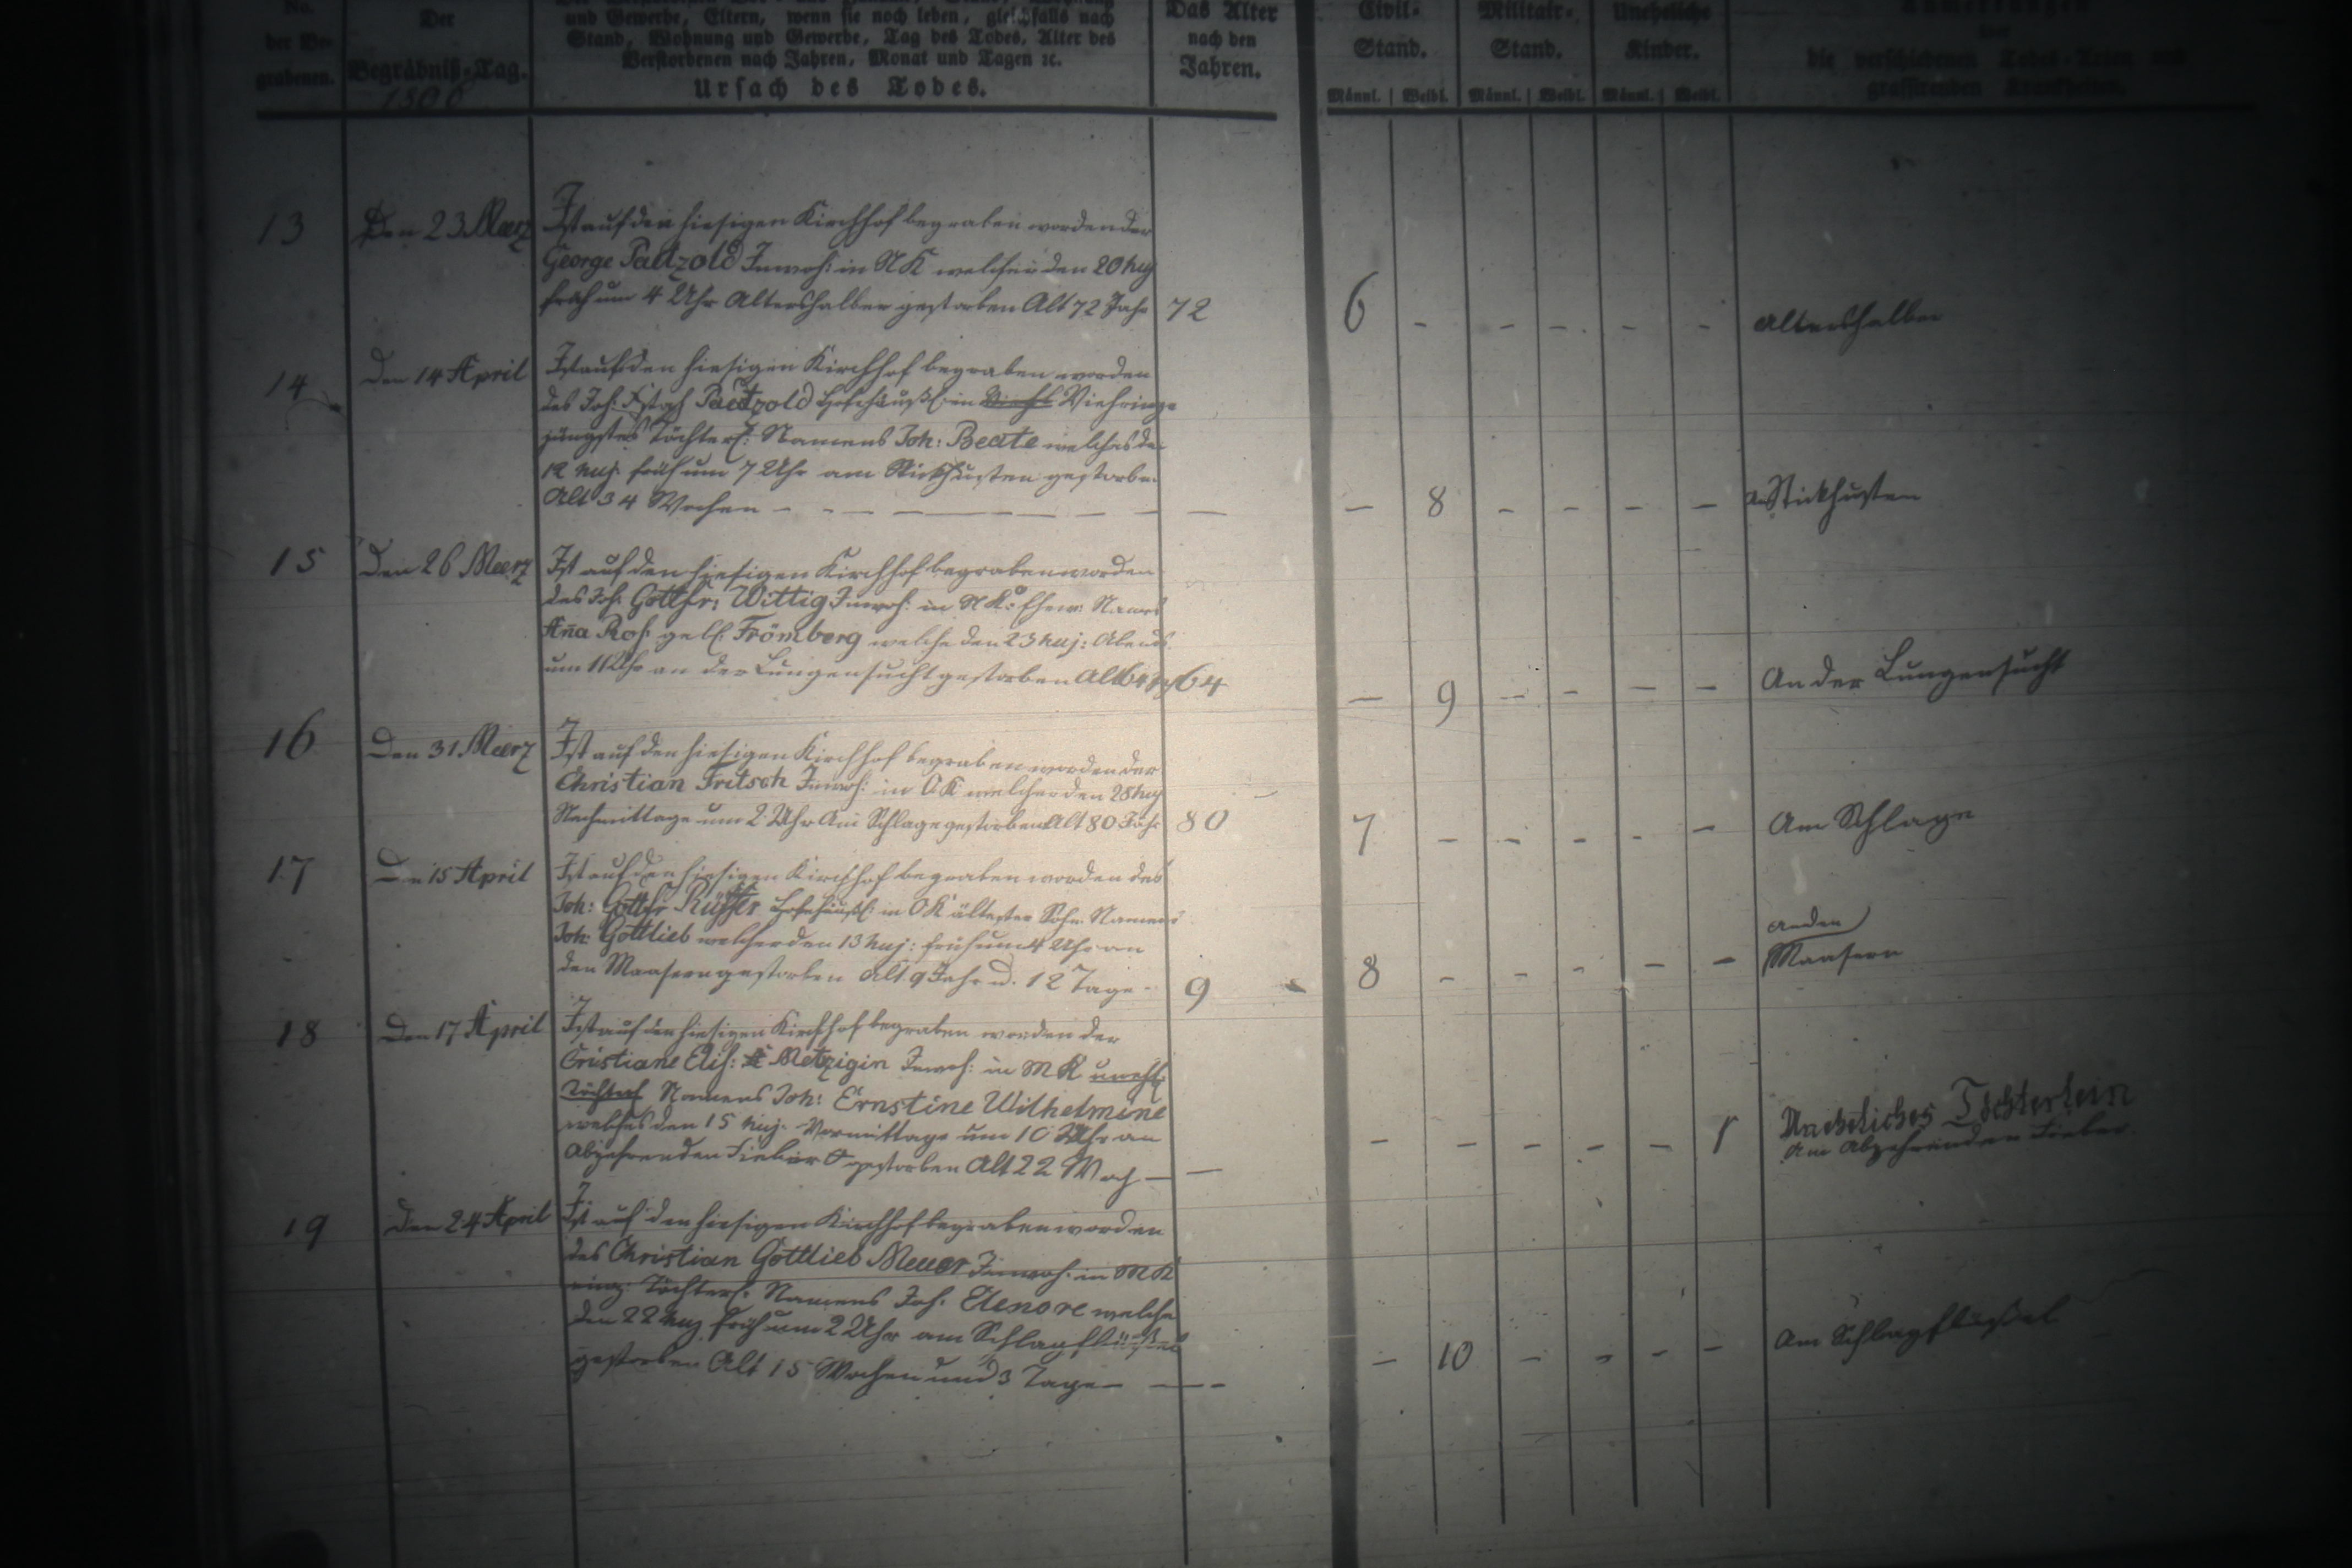 No.
der Be-
grabenen.
Der
Begräbniß-Tag.
1806
und Gewerbe, Eltern, wenn sie noch leben, gleichfalls nach
Stand, Wohnung und Gewerbe, Tag des Todes, Alter des
Verstorbenen nach Jahren, Monat und Tagen ꝛc.
Ursach des Todes.
Das Alter
nach den
Jahren.
Civil-
Stand.
Männl. | Weibl.
Militair-
Stand.
Männl. | Weibl.
Uneheliche
Kinder.
Männl. | Weibl.
Anmerkungen
über
die verschiedenen Todes-Arten und
grassirenden Krankheiten.
13 Den 23 Maerz Ist auf den hiesigen Kirchhof begraben worden der
George Paetzold Inwoh: in NK welcher den 20 huj
früh um 4 Uhr Altershalber gestorben Alt 72 Jahr 72 6 - - - - - Altershalber
14 Den 14 April Ist auf den hiesigen Kirchhof begraben worden
des Joh: Paetzold Hofehäußl: in Viehringe
jüngstes Töchterl: Namens Joh: Beate welches de
12 huj. früh um 7 Uhr am Stickhusten gestorbe.
Alt 34 Wochen — — - 8 - - - - Stickhusten
15 Den 26 Maerz Ist auf den hiesigen Kirchhof begraben worden
des Joh: Gottfr: Wittig Inwoh: in NK: Ehew: Namens
Aña Ros: geb: Frömberg welche den 23 huj: Abends
um 11 Uhr an der Lungensucht gestorben Alt 64 64 - 9 - - - - An der Lungensucht
16 Den 31 Maerz Ist auf den hiesigen Kirchhof begraben worden der
Christian Fritsch Inwoh: in OK welcher den 28 huj
Nachmittage um 2 Uhr Am Schlage gestorben Alt 80 Jahr 80 7 - - - - - Am Schlage
17 Den 15 April Ist auf den hiesigen Kirchhof begraben worden des
Joh: Gottfr Rüffer Hofehäußl: in OK ältester Sohn Namens
Joh: Gottlieb welcher den 13 huj: früh um 4 Uhr an
den Maasern gestorben Alt 9 Jahr u. 12 Tage - 9 8 - - - - - an den
Maasern
18 Den 17 April Ist auf den hiesigen Kirchhof begraben worden der
Cristiane Elis: Metzigin Inwoh: in MK unehl:
Töchterl Namens Joh: Ernstine Wilhelmine
welches den 15 huj. Vormittage um 10 Uhr an
Abzehrenden Fieber gestorben Alt 22 Woch — — - - - - - 1 Uneheliches Töchterlein
Am Abzehrenden Fieber
19 Den 24 April Ist auf den hiesigen Kirchhof begraben worden
des Christian Gottlieb Meuer Inwoh: in MK
einz: Töchterl: Namens Joh: Elenore welche
den 22 huj früh um 2 Uhr am Schlagflüßel
gestorben Alt 15 Wochen und 3 Tage — — - 10 - - - - Am Schlagflüßel